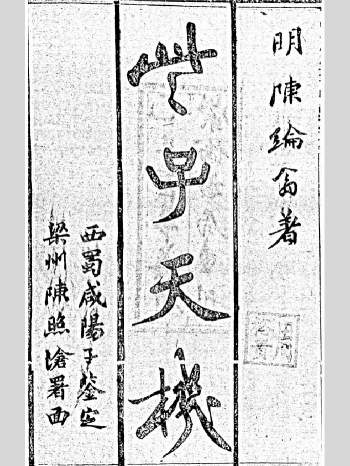 明陳著
子天機
西蜀咸陽子鑒定
梁州陳照滄署面